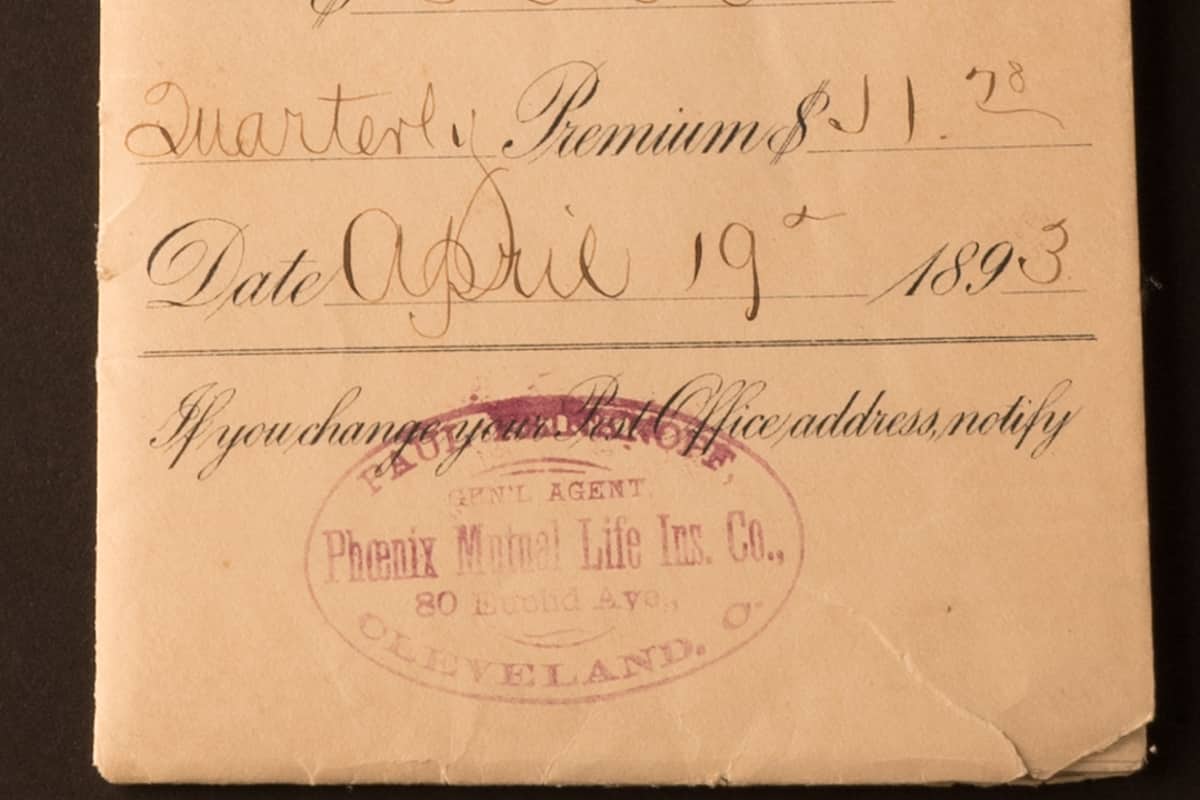 $
Quarterly Premium $ 11.78
Date April 19 1893
If you change your Post Office address, notify
PAUL
GEN'L AGENT.
Phœnix Mutual Life Ins. Co.,
80 Euclid Ave.,
CLEVELAND. O.